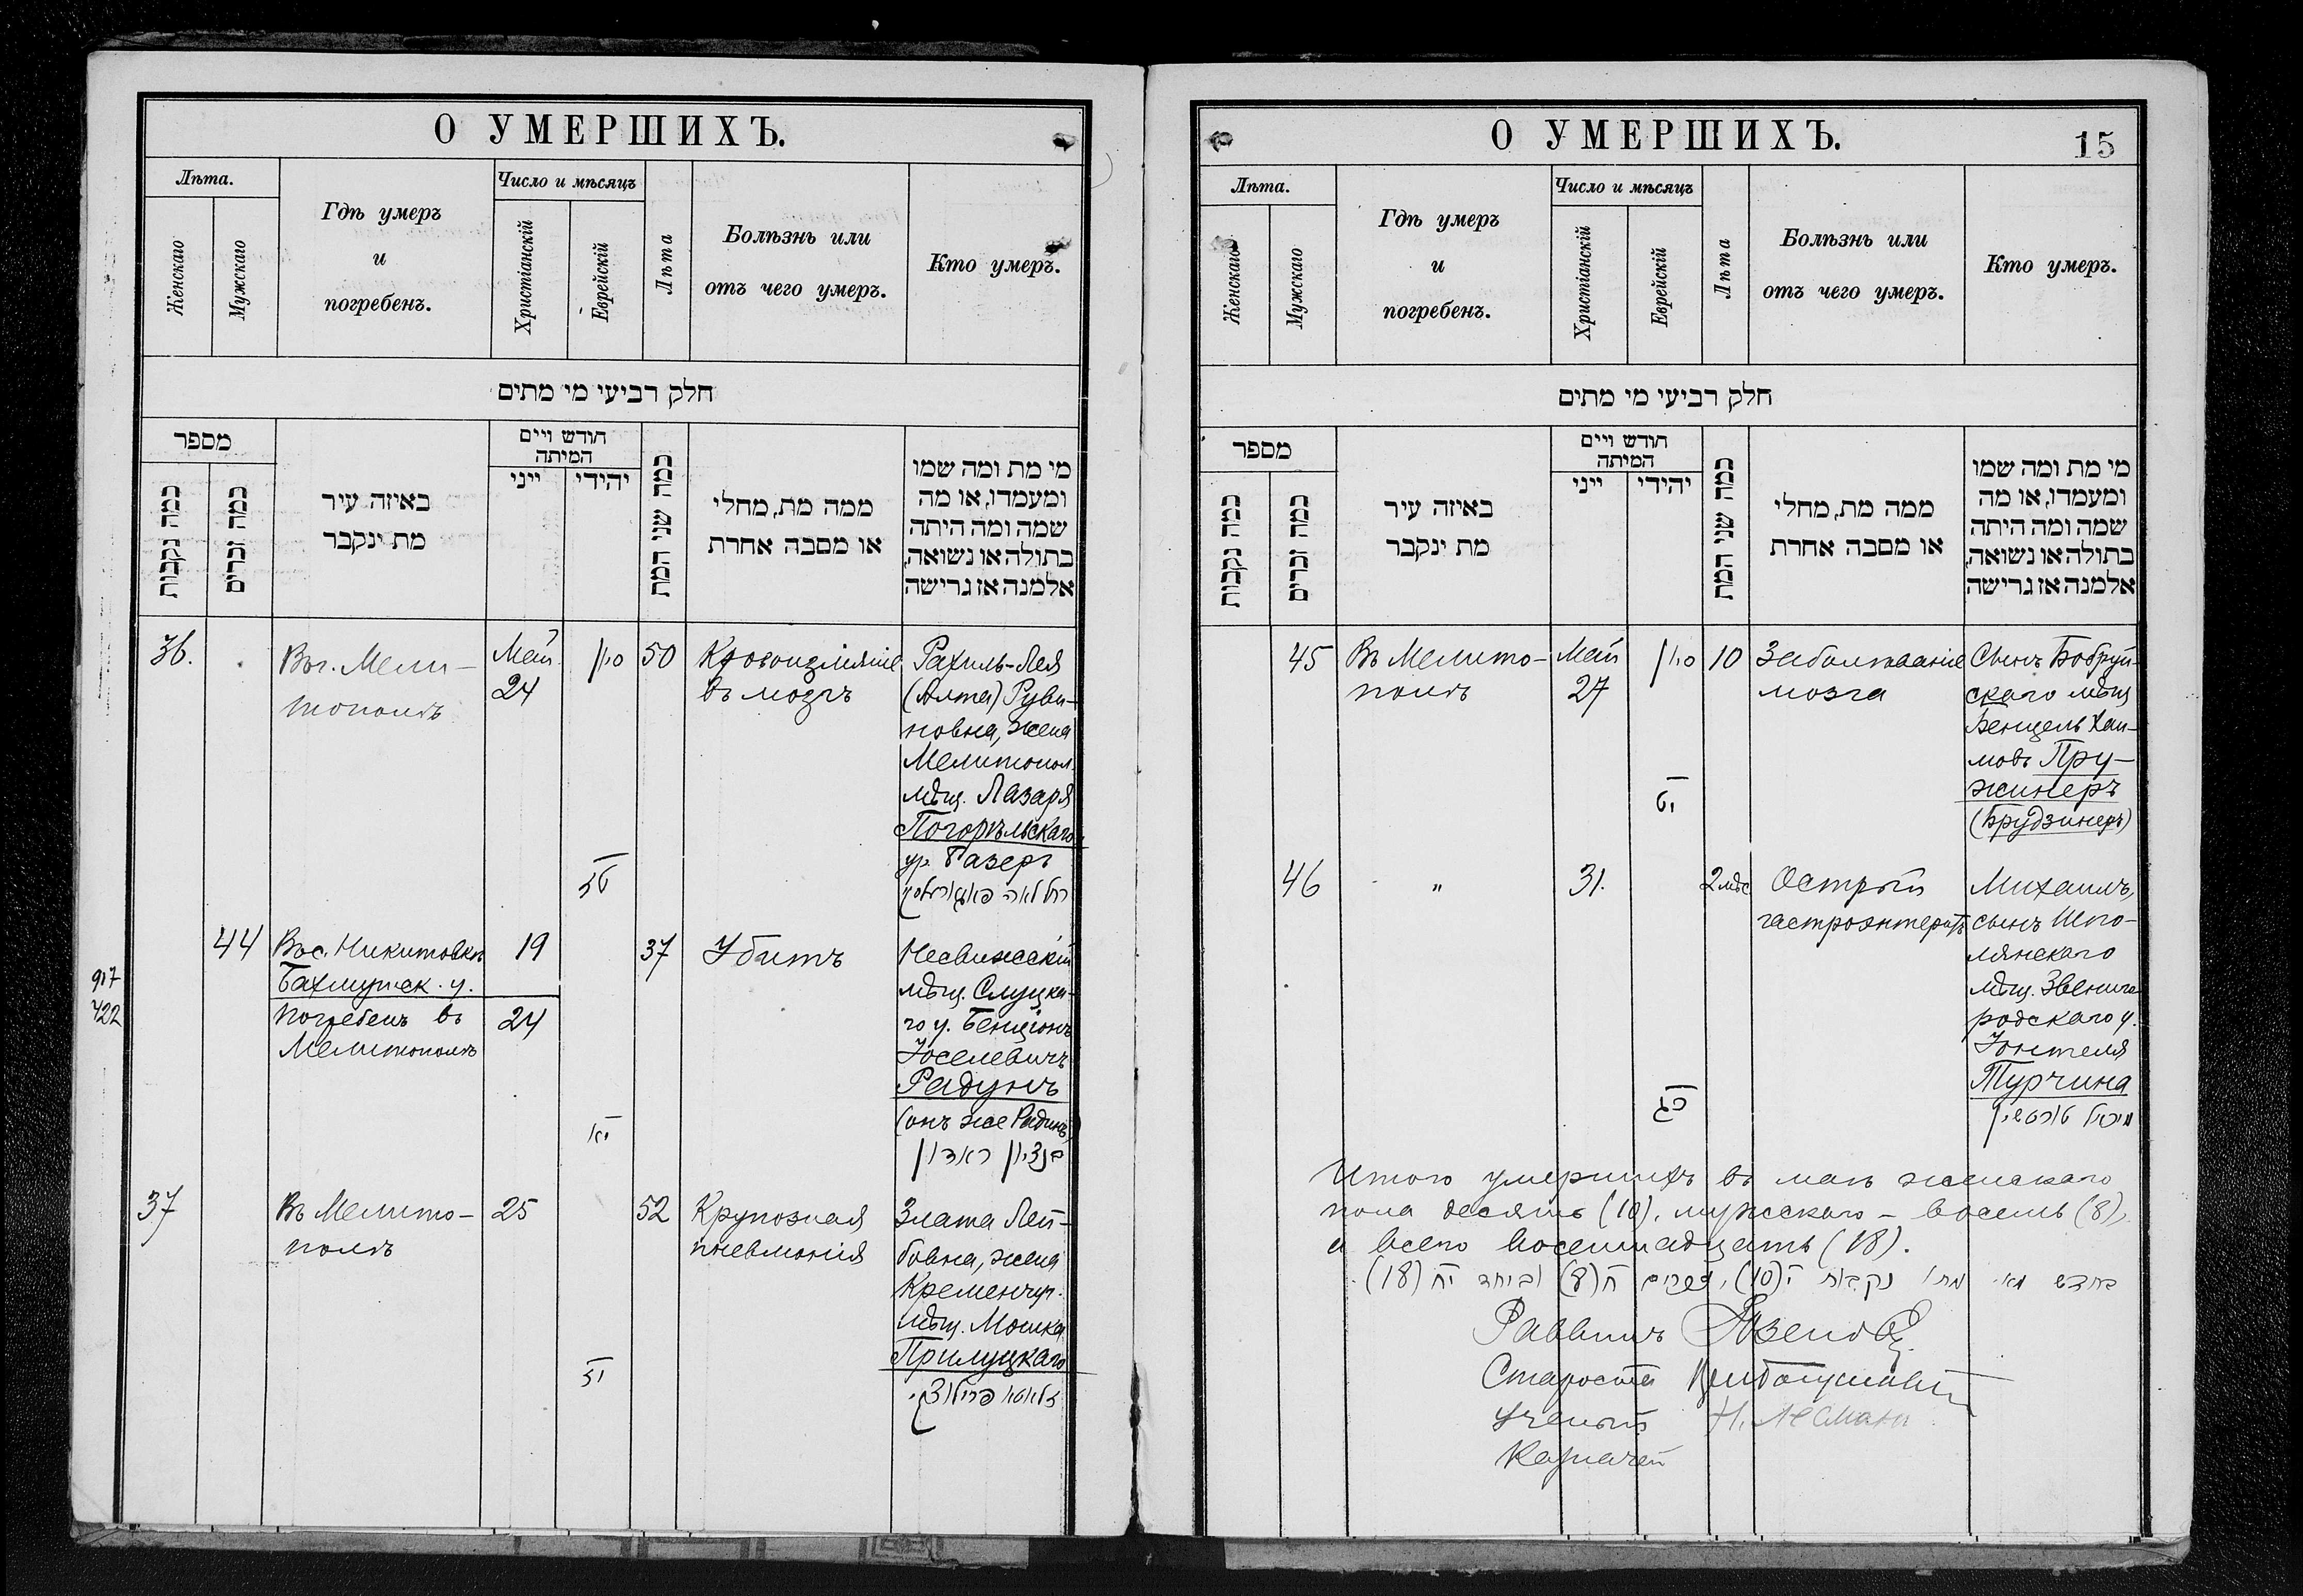 О УМЕРШИХЪ.
Лѣта.
Женскаго
Мужскаго
Гдѣ умеръ
и
погребенъ.
Число и мѣсяцъ
Христіанскій
Еврейскій
Лѣта
Болѣзнь или
отъ чего умеръ.
Кто умеръ.
חלק רביעי מי מתים
מספר
כמה נקבות
כמה זכרים
באיזה עיר
מת ינקבר
חודש ויים
המיתה
ייני
יהידי
כמה שני המת
ממה מת, מחלי
או מסבה אחרת
מי מת ומה שמו
ומעמדו, או מה
שמה ומה היתה
בתולה או נשואה,
אלמנה אז גרישה
36.
Въ г. Мели-
тополѣ
Май
24
סיון
50
Кровоизліяніе
въ мозгъ
Рахиль-Лея
(Алта) Руви-
новна, жена
Мелитопол.
мѣщ. Лазаря
Погорѣльскаго
ур. Разеръ
44
Въ с. Никитовкѣ
Бахмутск. у.
погребенъ въ
Мелитополѣ
19
24
37
Убитъ
Несвижскій
мѣщ. Слуцка-
го у. Бенціонъ
Іоселевичъ
Радунъ
(онъ же Радинъ)
בנציון ראדון
917
422
37
Въ Мелито-
полѣ
25
52
Крупозная
пневмонія
Злата Лей-
бовна, жена
Кременчуг.
мѣщ. Мошка
Прилуцкаго
О УМЕРШИХЪ.
15
Лѣта.
Женскаго
Мужскаго
Гдѣ умеръ
и
погребенъ.
Число и мѣсяцъ
Христіанскій
Еврейскій
Лѣта
Болѣзнь или
отъ чего умеръ.
Кто умеръ.
חלק רביעי מי מתים
מספר
כמה נקבות
כמה זכרים
באיזה עיר
מת ינקבר
חודש ויים
המיתה
ייני
יהידי
כמה שני המת
ממה מת, מחלי
או מסבה אחרת
מי מת ומה שמו
ומעמדו, או מה
שמה ומה היתה
בתולה או נשואה,
אלמנה אז גרישה
45
Въ Мелито-
полѣ
Май
27
סיון
יט
10
Заболѣваніе
мозга
Сынъ Бобруй-
скаго мѣщ
Бенцель Хаи-
мовъ Пру-
жинеръ
(Брудзинеръ)
46
"
31.
כג
2 мѣс
Острый
гастроэнтеритъ
Михаилъ,
сынъ Шпо-
лянскаго
мѣщ. Звениго-
родскаго у.
Іонтеля
Турчина
Итого умершихъ въ маѣ женскаго
пола десять (10), мужского - восемь (8),
а всего восемнадцать (18).
בחדש מאי מתו נקבות י (10), זכרים ח (8) וביחד יח (18).
Раввинъ
Староста
Ученый
Казначей